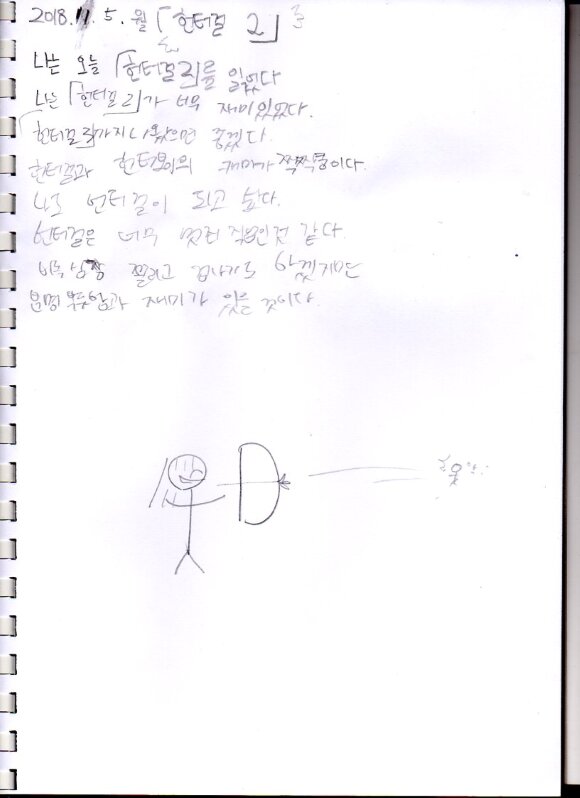 2018. 11. 5. 월 「헌터걸 2」
나는 오늘 「헌터걸 2」를 읽었다
나는 「헌터걸 2」가 너무 재미있었다.
헌터걸 3까지 나왔으면 좋겠다.
헌터걸과 헌터보이의 재미가 짝짝쿵이다.
나도 헌터걸이 되고 싶다.
헌터걸은 너무 멋진 직업인것 같다.
비록 심장 떨리고 겁나기도 하겠지만
분명 뿌듯함과 재미가 있을 것이다.